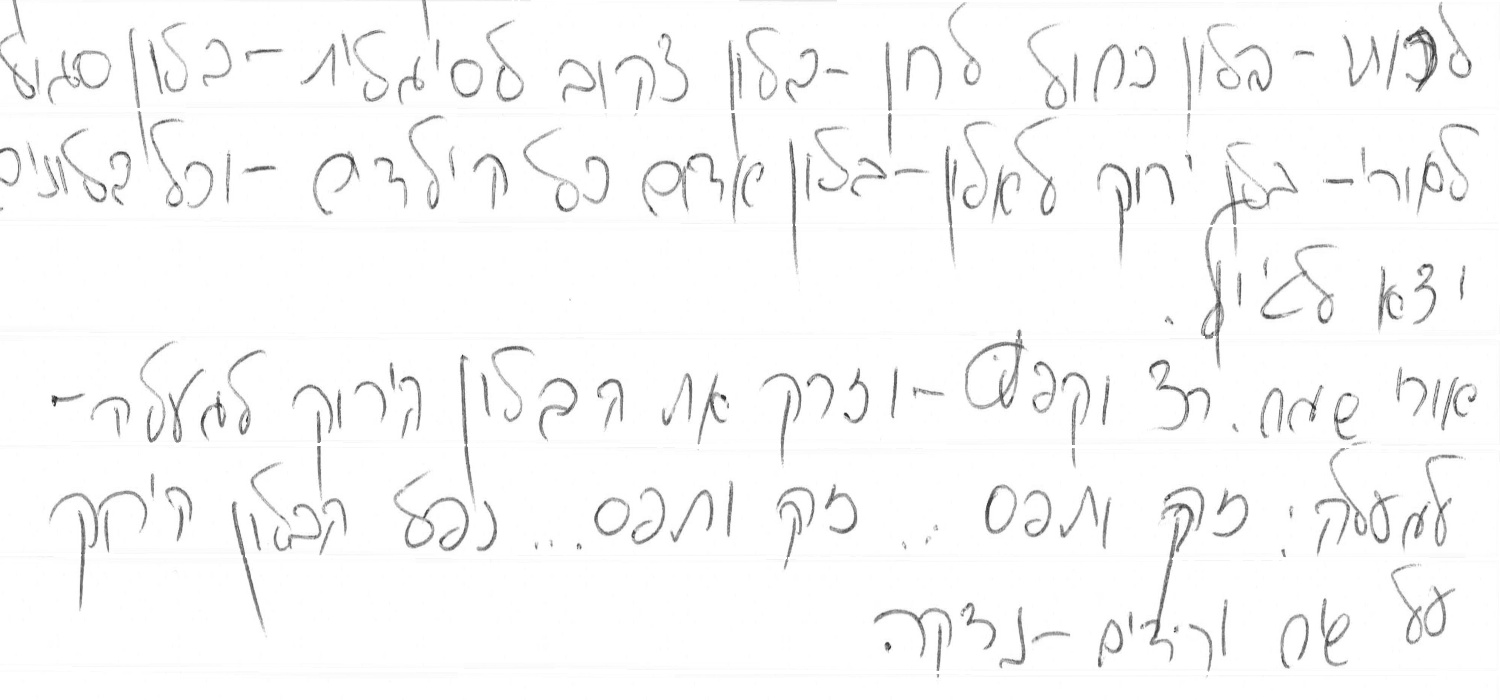 לרות - בלון כחול לרון - בלון צהוב לסיגלית - בלון סגול
לאורי - בלון ירוק לאלון - בלון אדום כל הילדים - וכל בלונים
יצא לטייל.
אורי שמח. רץ וקפץ - וזרק את הבלון הירוק למעלה -
למעלה: זרק ותפס .. זרק ותפס... נפל הבלון הירוק
על שיח ורדים - נדקר.